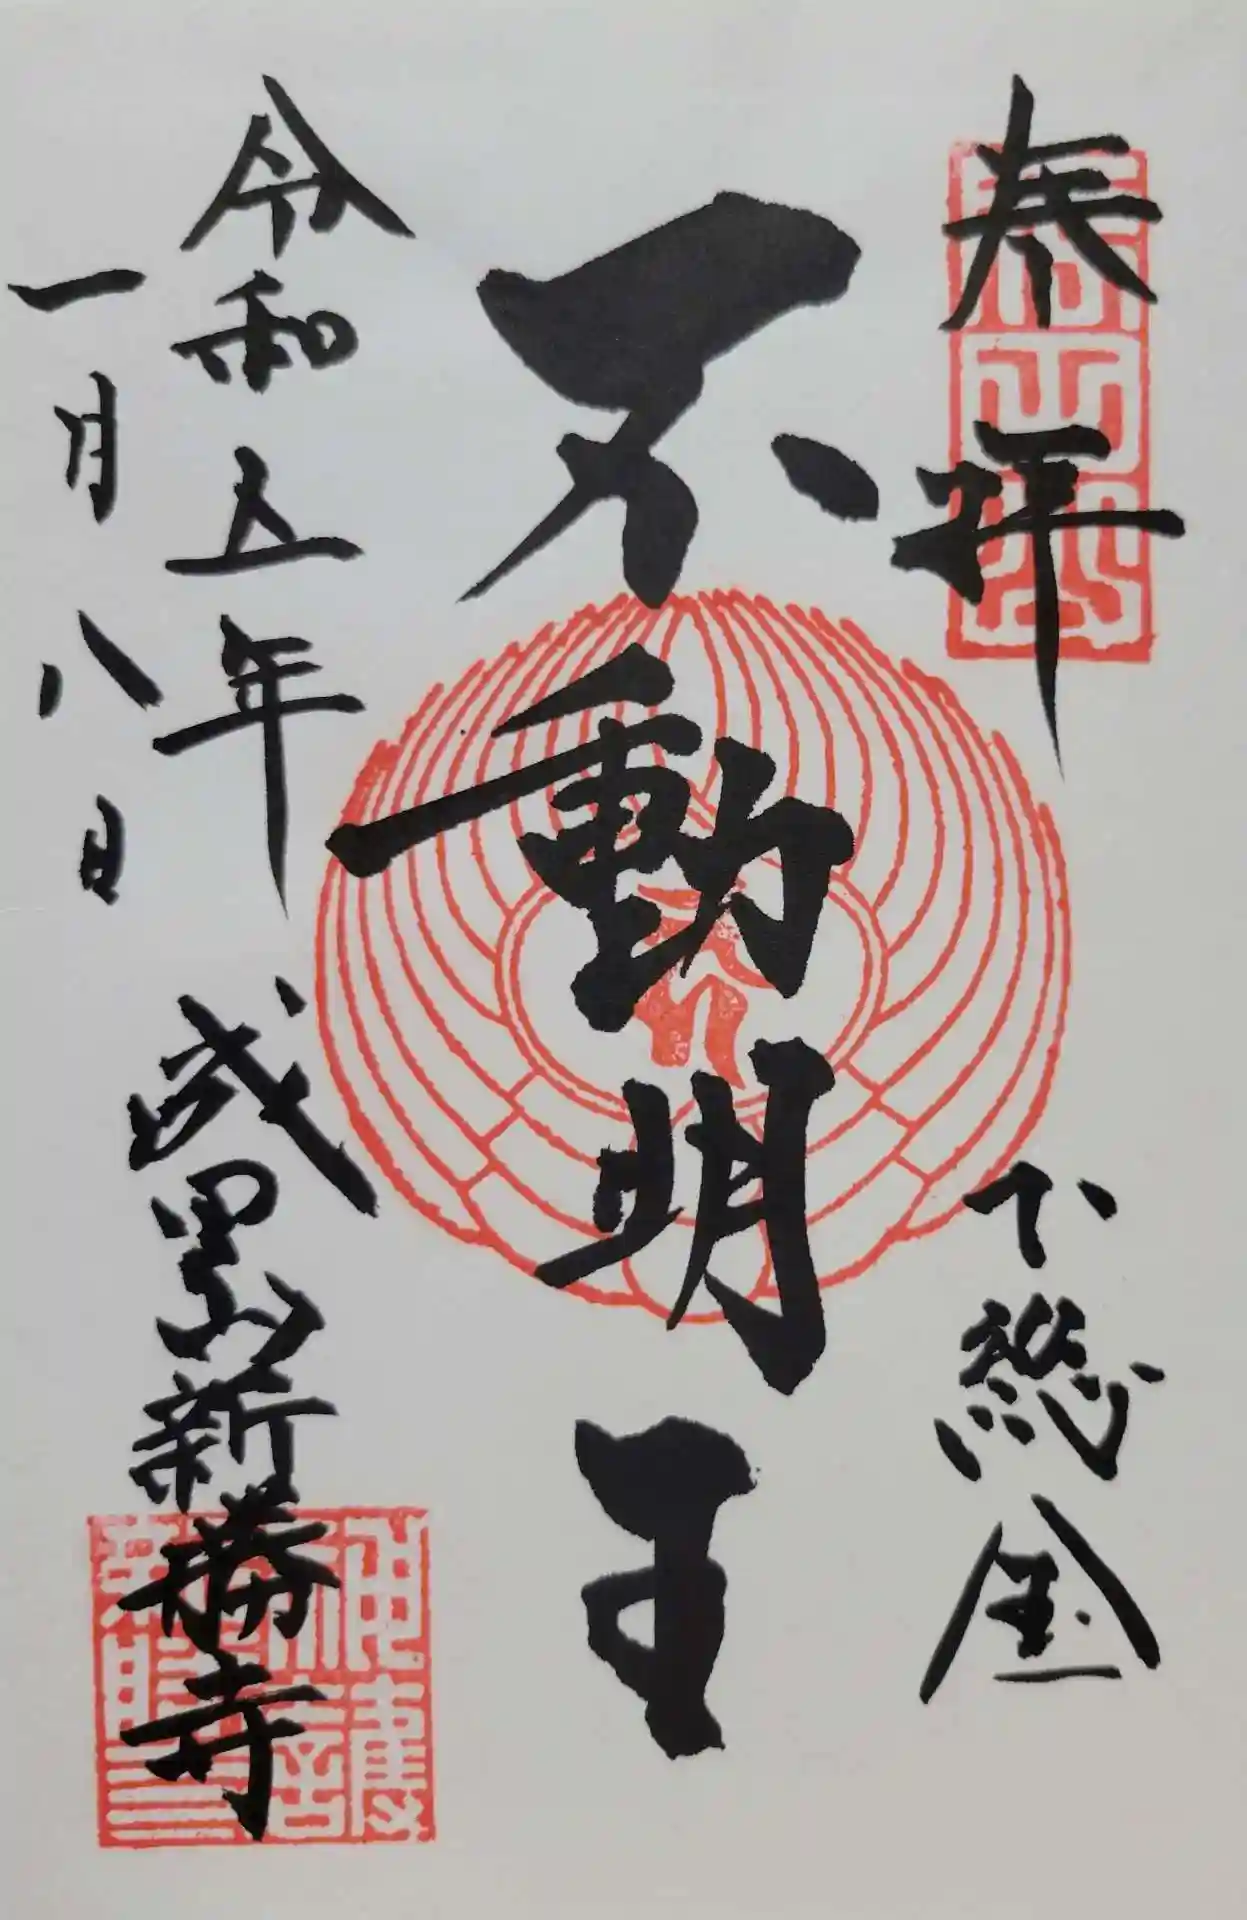 奉拝
下総国
不動明王
令和五年
一月八日
成田山新勝寺